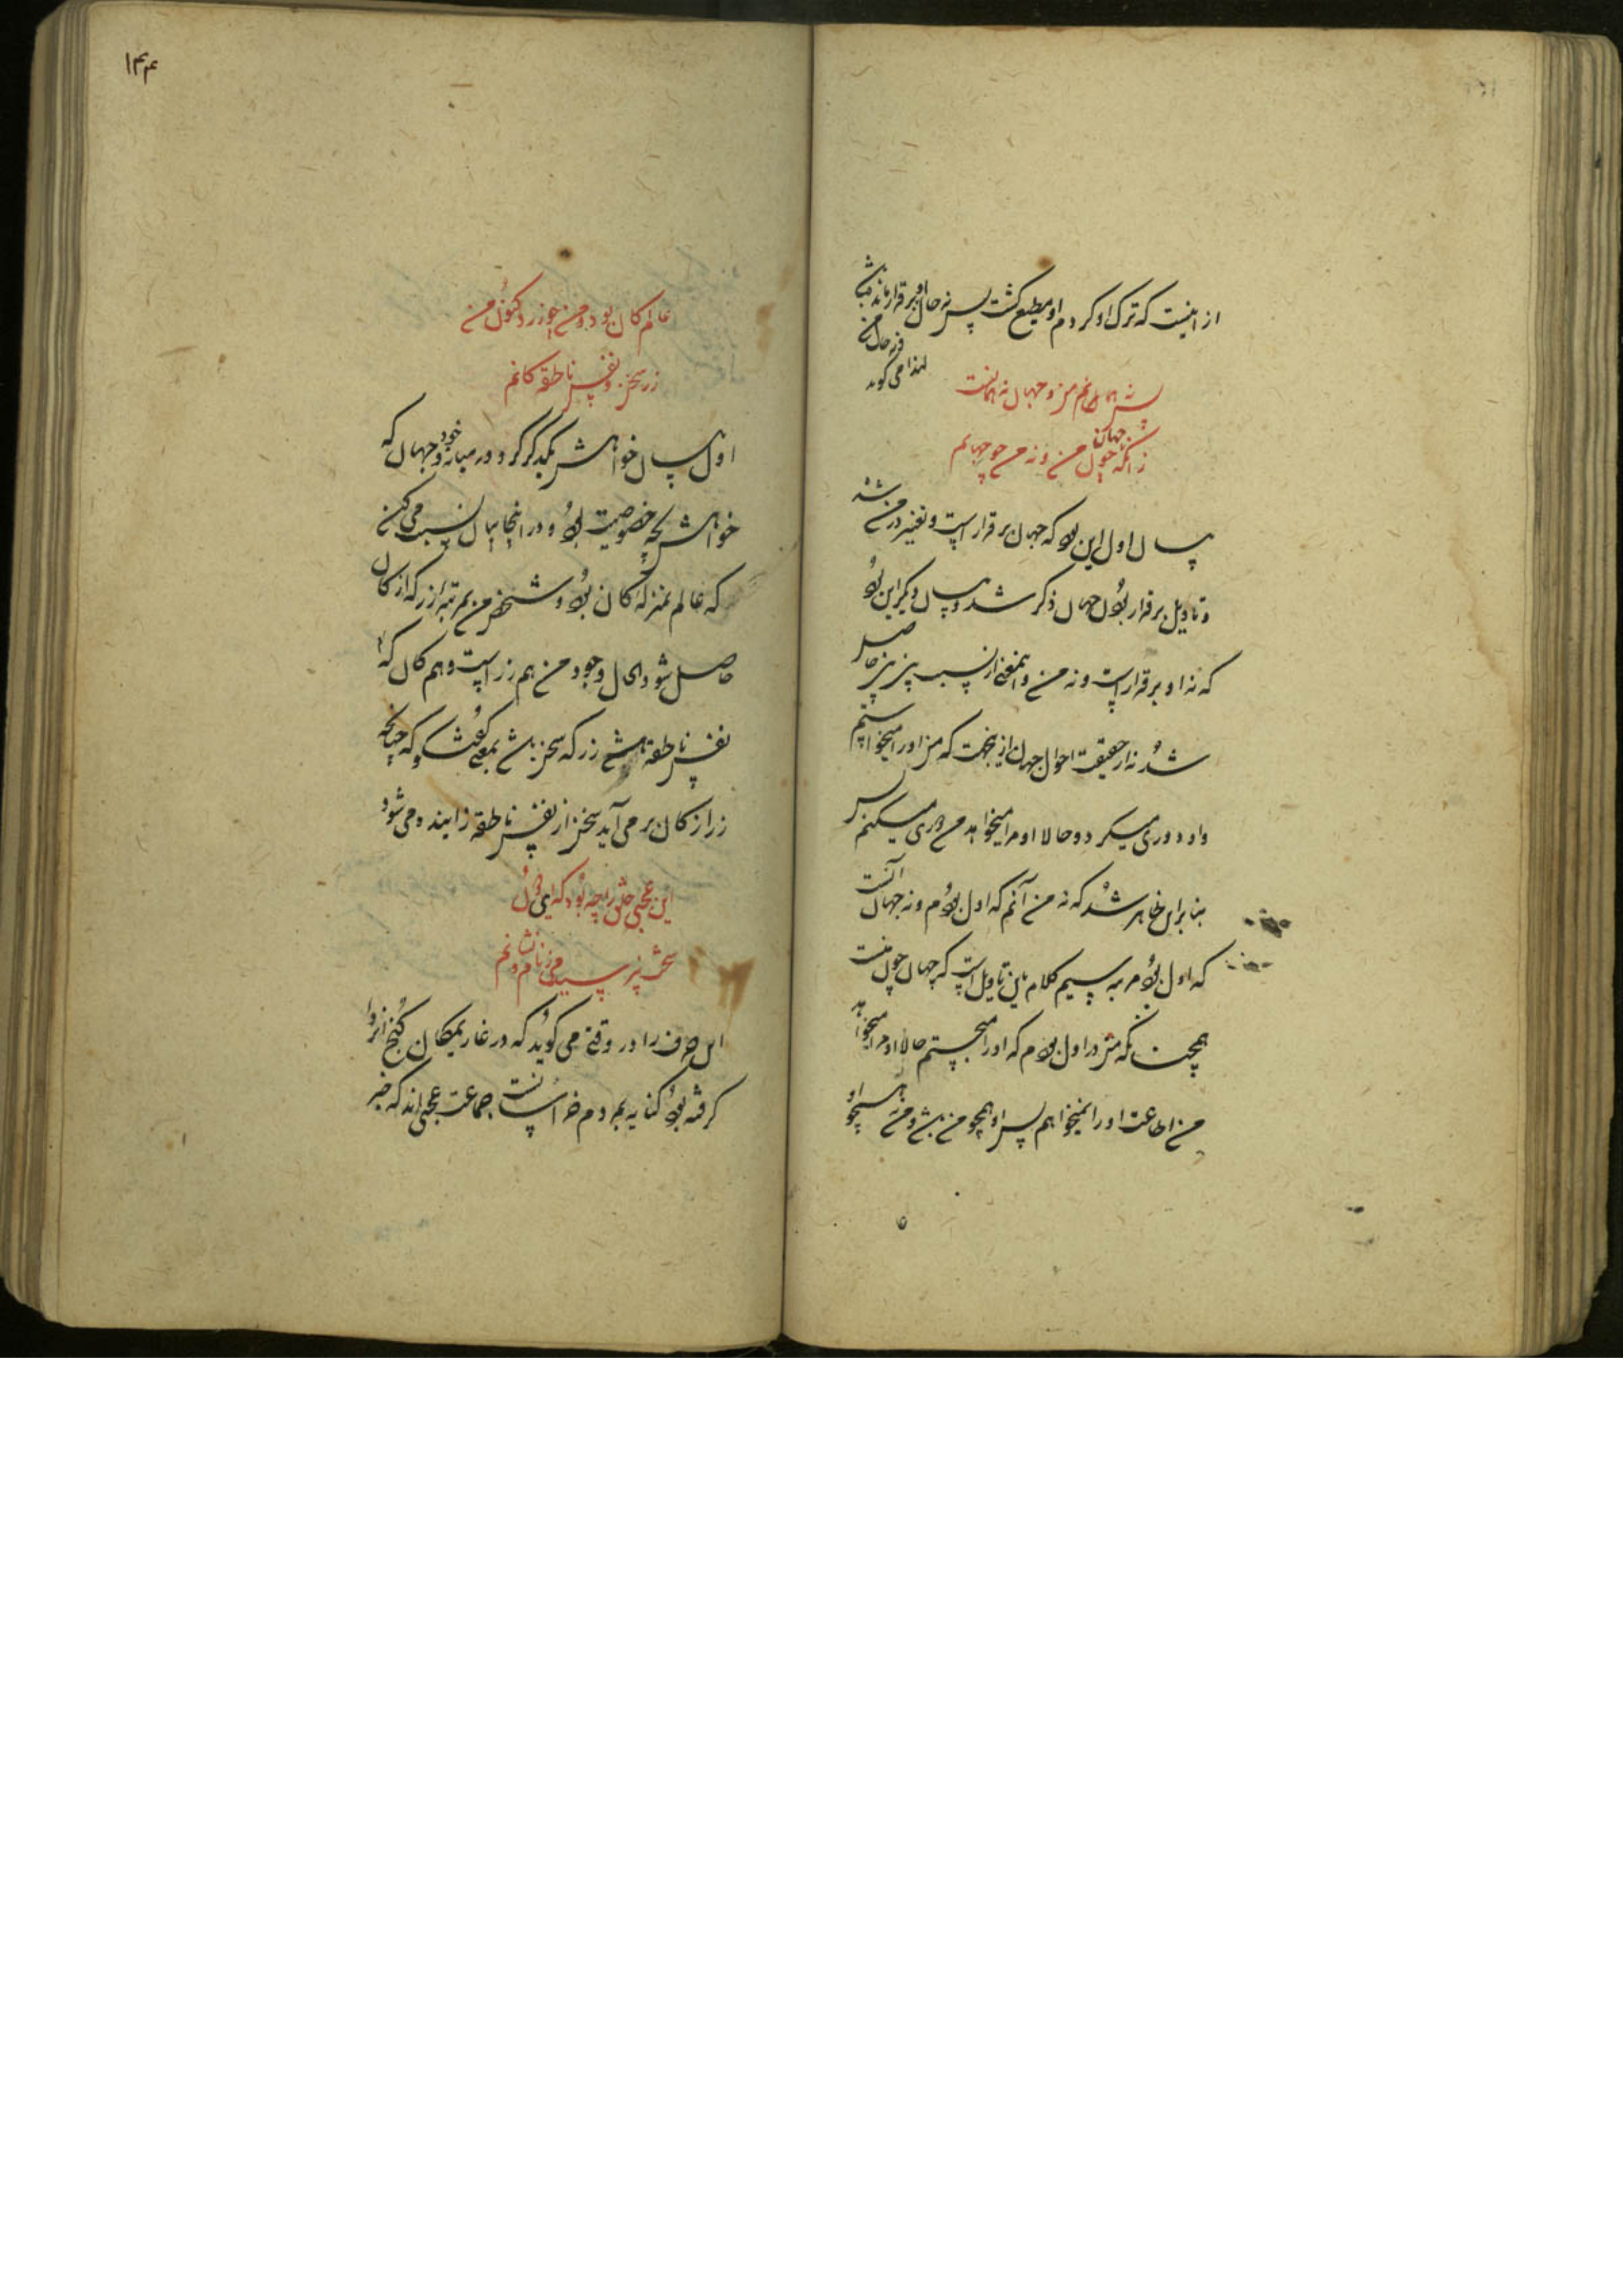 از اینست که ترک او کردم او مطیع گشت پس نه حال او برقرار ماند باشد
و نه حال من
لهذا می گوید
پس نه همانم من و جهان نه همانست
زانکه جهان چون من و نه من چو جهانم
بیان اول این بود که جهان برقرار است و تغیر در من شد
و تاویل برقرار بودن جهان ذکر شد و بیان دیگر این بود
که نه او برقرار است و نه من و این معنی از نسبت نیز حاصل
شد نه از حقیقت احوال جهان از بجهت که من او را میخواستم
و او دوری میکرد و حالا او مرا میخواهد من دوری میکنم پس
بنابران ظاهر شد که نه من آنم که اول بودم و نه جهان آنست
که اول بود سیم کلام باین تاویل است که جهان چون منست
همچنانکه من در اول بودم که او را میجستم حالا او مرا میخواهد
من اطاعت او را نمیخواهم پس او همچو من باشد و من همچو او
۱۴۴
عالم کان بود و من چو زر و کنون من
زر سخن و نفس ناطقه کانم
اول بیان خواهش یکدیگر کرد در میانه خود و جهان که
خواهش بچه خصوصیت بود و در اینجا بیان نسبت می کند
که عالم بمنزله کان بود و شخص من بمرتبه زر که از کان
حاصل شود الحال وجود من هم زر است و هم کان که
نفس ناطقه باشد زر که سخن باشد بمعنی گفت و که چنانچه
زر از کان بر می آید سخن از نفس ناطقه زاینده می شود
این عجمی خلق را چه بود که ایدون
سخت بترسیدمی ز نام و نشانم
این حرف را در وقتی می گوید که در غار یمکان کنج انزوا
گرفته بود کنایه بمردم خراسانست جماعت عجمی اند که خبر